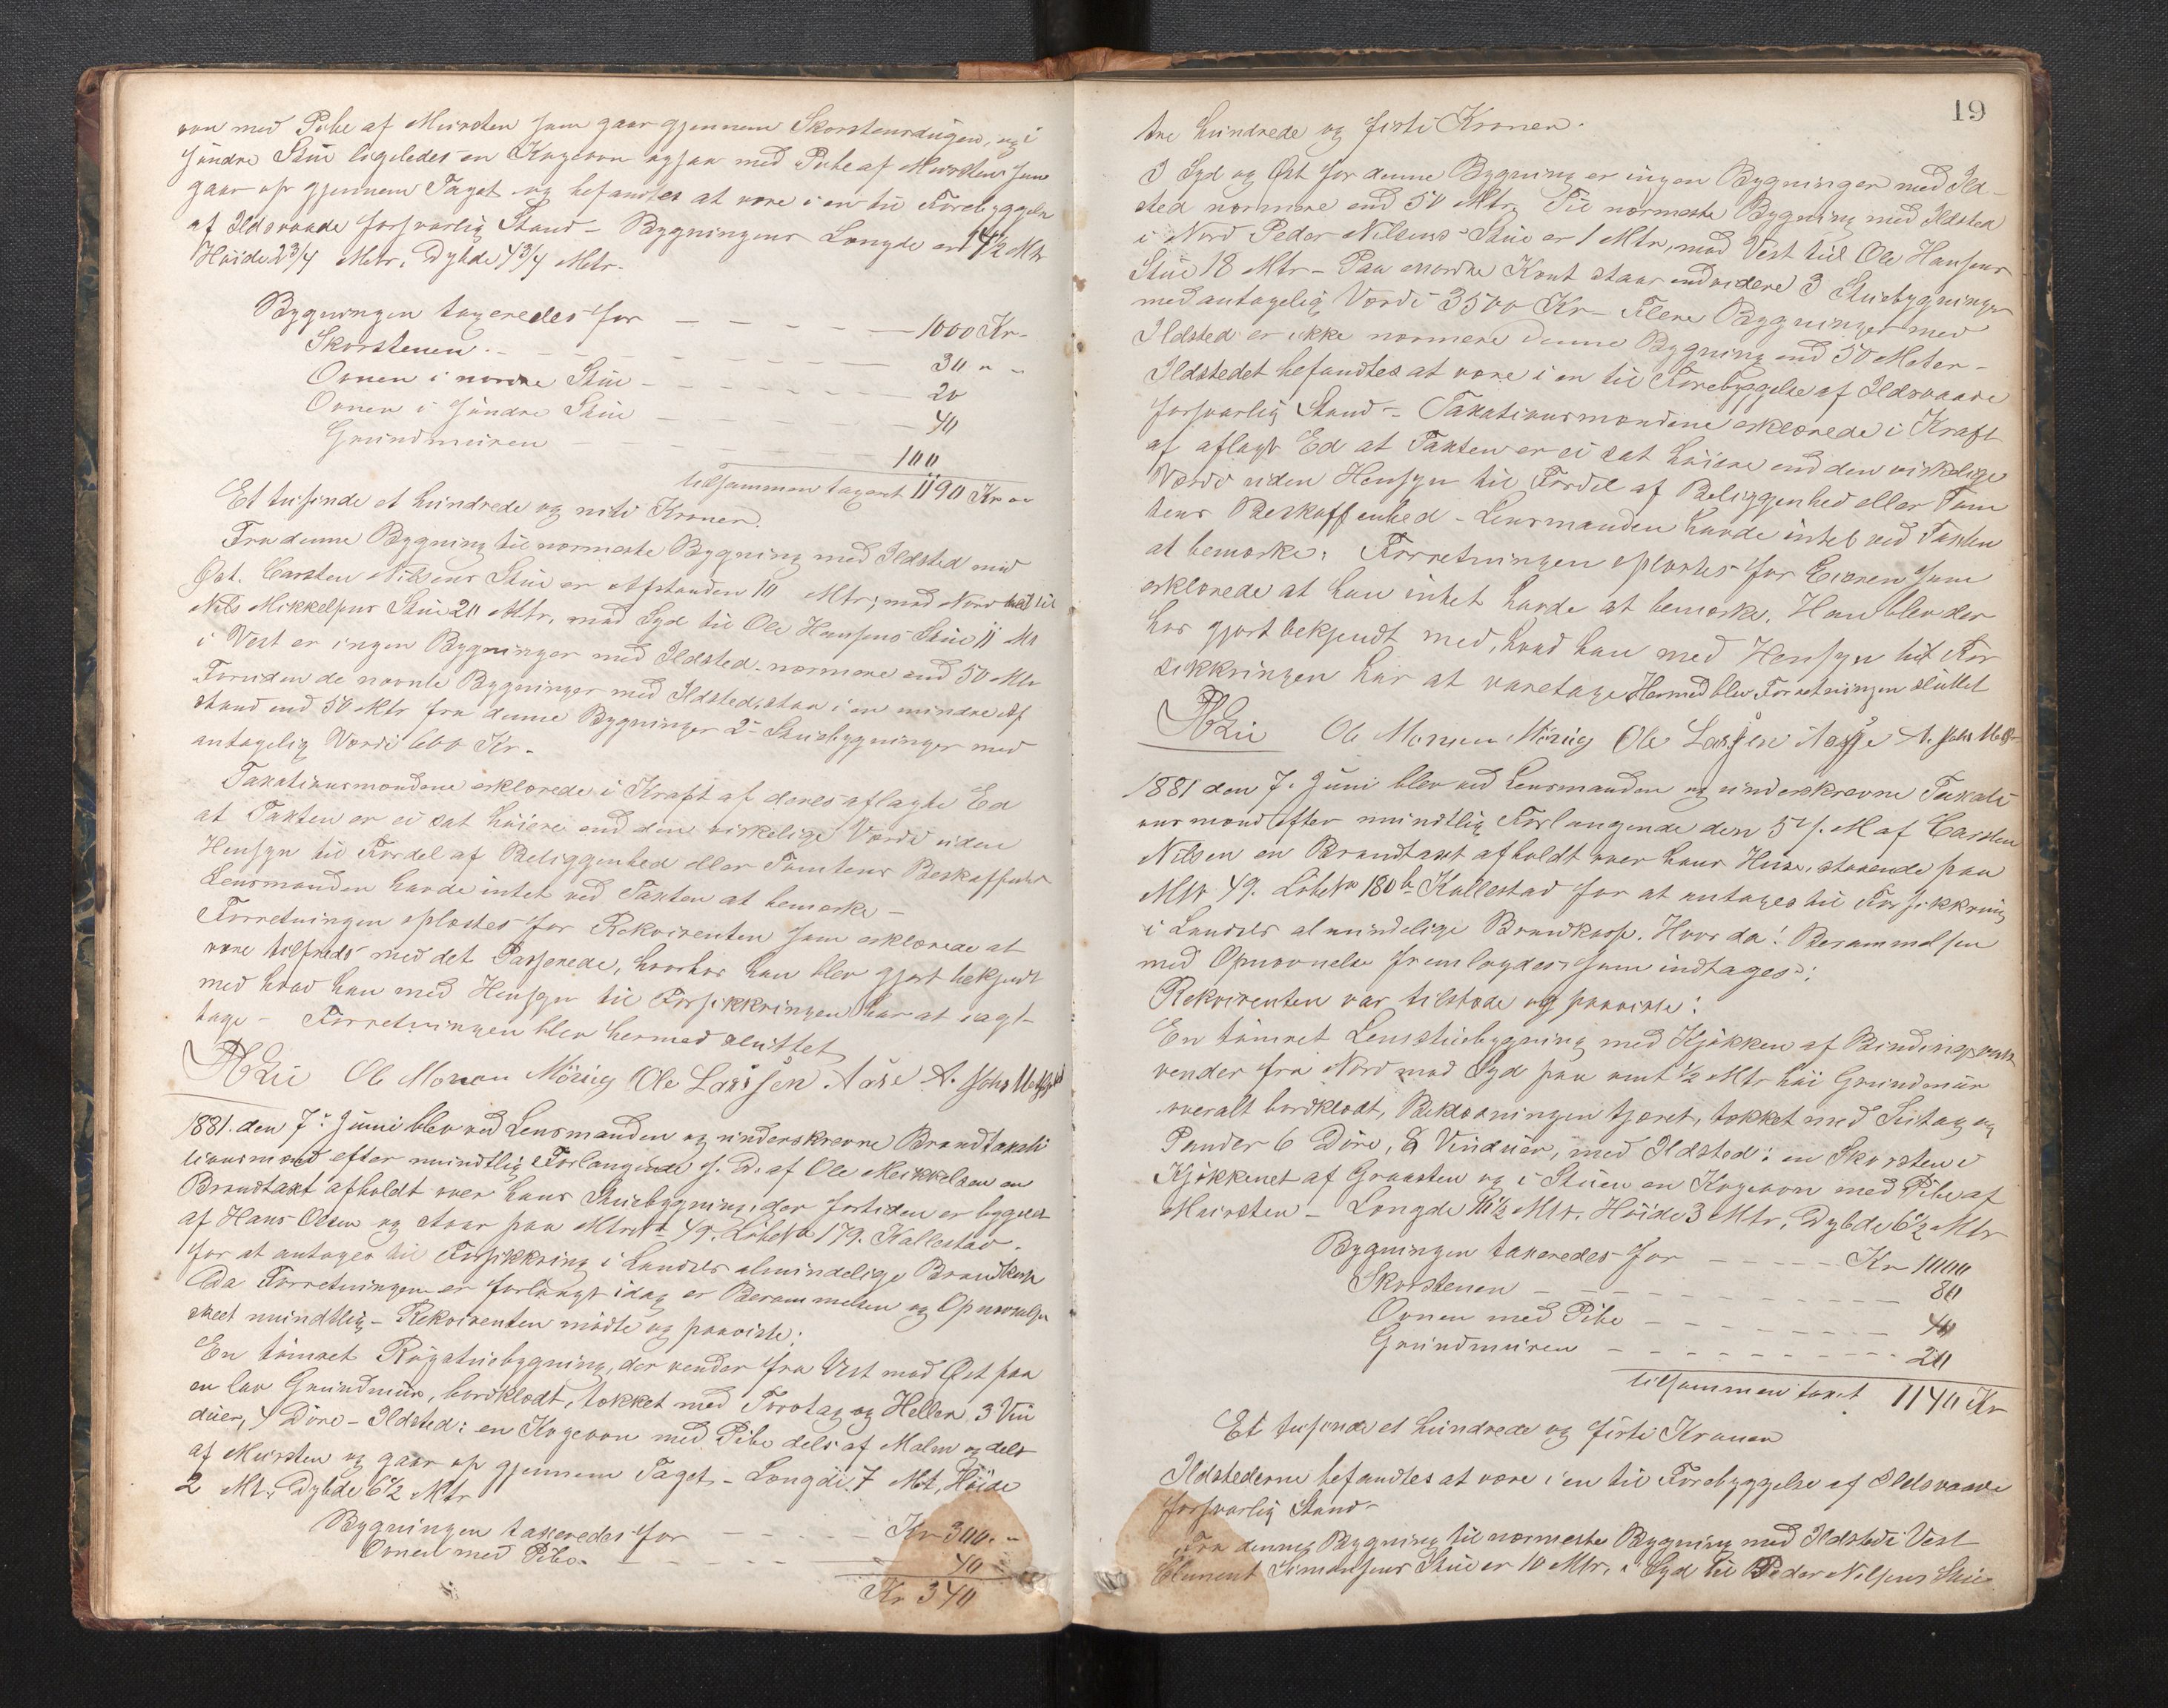 vn med Pibe af Mursten som gaar gjennem Skorstensdugen, og i
søndre Stue ligeledes en Kogeovn ogsaa med Pibe af Mursten som
gaar op gjennem Taget og befandtes at være i en til Forebyggelse
af Ildsvaade forsvarlig Stand – Bygningens Længde er 14½ Mtr
Høide 2 3/4 Metr. Dybde 4 3/4 Metr.
Bygningen taxeredes for – – – – – 1000 Kr –
Skorstenen. – – – – – – 30 " –
Ovnen i nordre Stue – – – – – – 20
Ovnen i søndre Stue – – – – – – 40
Grundmuren – – – – – – 100
tilsammen taxeret 1190 Kr
Et tusinde et hundrede og niti Kroner.
Fra denne Bygning til nærmeste Bygning med Ildsted mod
Øst. Carsten Nilsens Stue er Afstanden 10 Mtr; mod Nord til
Nils Mikkelsens Stue 20 Mtr, mod Syd til Ole Hansens Stue 11 Mt
i Vest er ingen Bygninger med Ildsted nærmere end 50 Mtr
Foruden de nævnte Bygninger med Ildsted, staa i en mindre Af
stand end 50 Mtr fra denne Bygninger 2 Stuebygninger med
antagelig Værdi 600 Kr –
Taxationsmændene erklærede i Kraft af deres aflagte Ed
at Taxten er ei sat høiere end den virkelige Værdi uden
Hensyn til Fordel af Beliggenhed eller Tomtens Beskaffenhed
Lensmanden havde intet ved Taxten at bemærke –
Forretningen oplæstes for Rekvirenten som erklærede at
være tilfreds med det Passerede, hvorhos han blev gjort bekjendt
med hvad han med Hensyn til Forsikkringen har at iagt-
tage – Forretningen blev hermed sluttet
Ole Monsen Ole Larssen Aase A.
1881. den 7de Juni blev ved Lensmanden og underskrevne Brandtaxati
tionsmænd efter mundtlig Forlangende s. D. af Ole Mikkelsen en
Brandtaxt afholdt over hans Stuebygning, der fortiden er bygslet
af Hans Olsen og staar paa Mtr № 49. Løbe № 179. Kallestad.
for at antages til Forsikkring i Landets almindelige Brandkasse
Da Forretningen er forlangt idag er Berammelsen og Opnævnelsen
skeet mundtlig – Rekvirenten mødte og paaviste:
En tømret Røgstuebygning, der vender fra Vest mod Øst paa
en lav Grundmur, bordklædt, tækket med Torvtag og Heller, 3 Vin
duer, 4 Døre – Ildsted: en Kogeovn med Pibe dels af Malm og dels
af Mursten og gaar op gjennem Taget – Længde 7 Mt, Høide
2 Mt. Dybde 6½ Mtr
Bygningen taxeredes for – – – – – Kr 300. –
Ovnen med Pibe. – – – – – 40
Kr 340
19
tre hundrede og firti Kroner.
I Syd og Øst for denne Bygning er ingen Bygninger med Ild-
sted nærmere end 50 Mtr. Til nærmeste Bygning med Ildsted
i Nord Peder Nilsens Stue er 1 Mtr, mod Vest til Ole Hansens
Stue 18 Mtr – Paa nordre Kant staar endvidere 3 Stuebygninger
med antagelig Værdi 3500 Kr – Flere Bygninger med
Ildsted er ikke nærmere denne Bygning end 50 Meter –
Ildstedet befandtes at være i en til Forebyggelse af Ildsvaade
forsvarlig Stand – Taxationsmændene erklærede i Kraft
af aflagt Ed at Taxten er ei sat høiere end den virkelige
Værdi uden Hensyn til Fordel af Beliggenhed eller Tom
tens Beskaffenhed – Lensmanden havde intet ved Taxten
at bemærke. Forretningen oplæstes for Eieren som
erklærede at han intet havde at bemærke. Han blev der
hos gjort bekjendt med, hvad han med Hensyn til For
sikkringen har at varetage Hermed blev Forretningen sluttet
Ole Monsen Ole Larssen Aase A.
1881 den 7. Juni blev ved Lensmanden og underskrevne Taxati
onsmænd efter mundtlig Forlangende den 5 d. M af Carsten
Nilsen en Brandtaxt afholdt over hans Huse, staaende paa
Mtr 49. Løbe № 180 b Kallestad for at antages til Forsikkring
i Landets almindelige Brandkasse. Hvor da! Berammelsen
med Opnævnelse fremlagdes, som indtages:
Rekvirenten var tilstede og paaviste:
En tømret Lemstuebygning med Kjøkken af Bindingsverk
vender fra Nord mod Syd paa omt ½ Mtr høi Grundmur
overalt bordklædt, Beklædningen tjæret, tækket med Sutag og
Pander 6 Døre, 8 Vinduer, med Ildsted: en Skorsten i
Kjøkkenet af Graasten og i Stuen en Kogeovn med Pibe af
Mursten – Længde 10½ Mtr. Høide 3 Mtr, Dybde 6½ Mtr
Bygningen taxeredes for – – – – – Kr 1000
Skorstenen – – – – – – – – 80
Ovnen med Pibe – – – – – – – 40
Grundmuren – – – – – – – – 20
tilsammen taxt 1140 Kr
Et tusende et hundrede og firti Kroner
Ildstederne befandtes at være i en til Forebyggelse af Ildsvaade
forsvarlig Stand –
Fra denne Bygning til nærmeste Bygning med Ildsted i Vest
Clement Simonsens Stue er 10 Mtr, i Syd til Peder Nilsens Stue